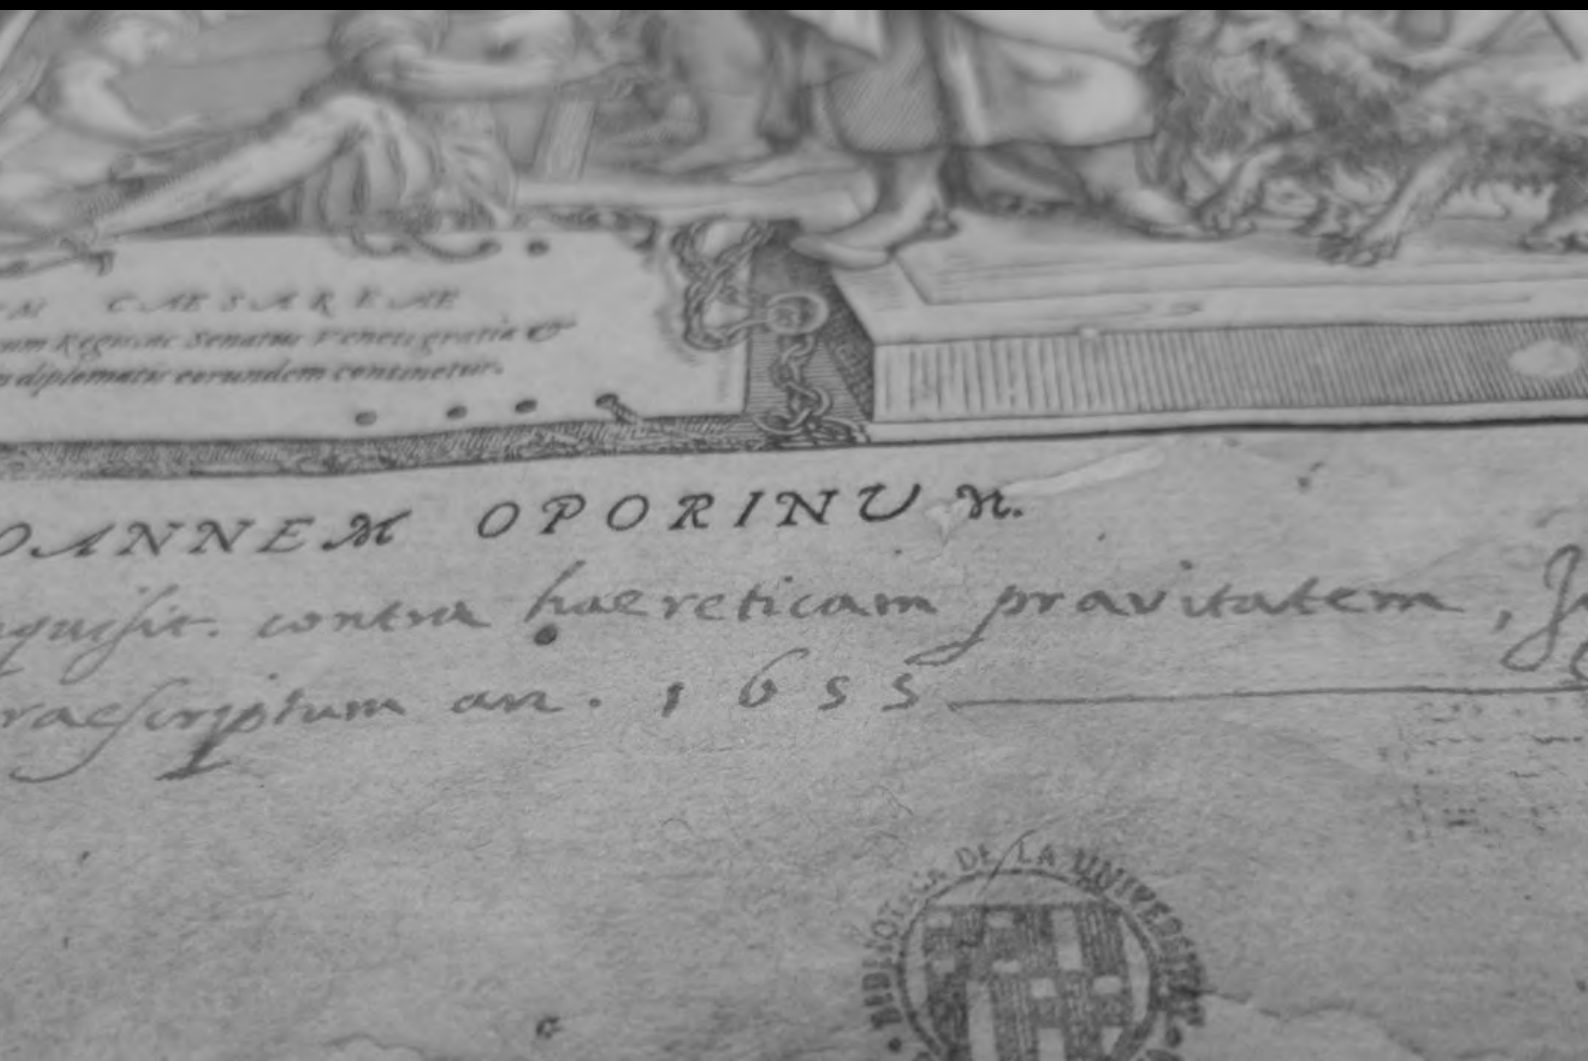 CAESAREAE
Regis, ac Senatus Veneti gratia &
diplomatis eorundem continetur.
OANNEM OPORINUM.
quisit. contra haereticam pravitatem,
raescriptum an. 1655
BIBLIOTECA DE LA UNIVERSITAT